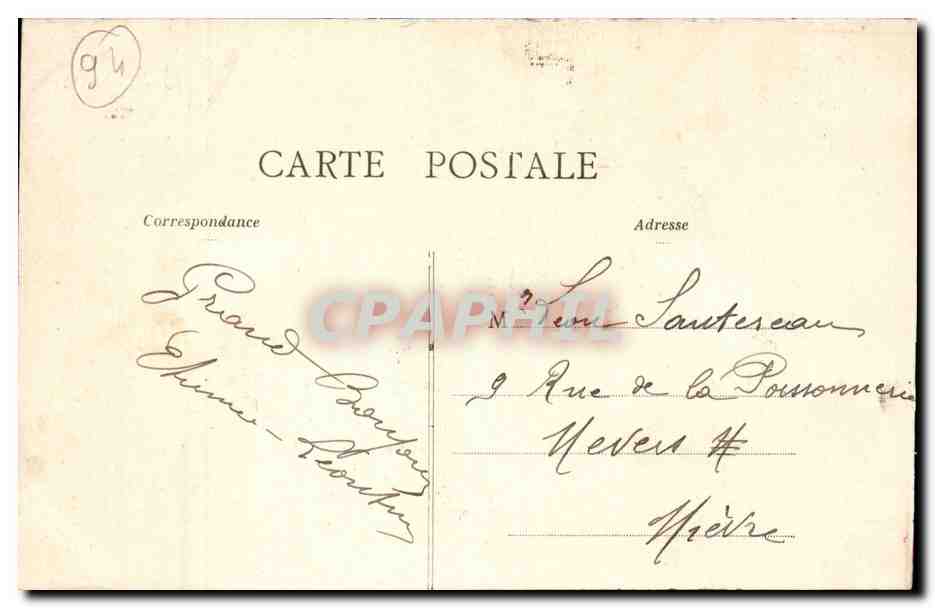 94
CARTE POSTALE
Correspondance
Adresse
Grand Bonjour
Etienne - Léontine
CPAPHIL
Mr Léon Sautereau
9 Rue de la Poissonnerie
Nevers
Nièvre